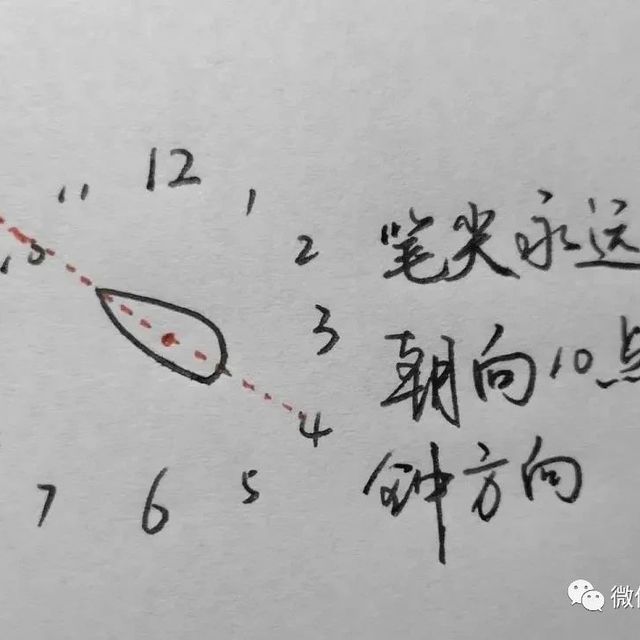 12
11
1
10
2
3
4
5
6
7
笔尖永远
朝向10点
钟方向
微信